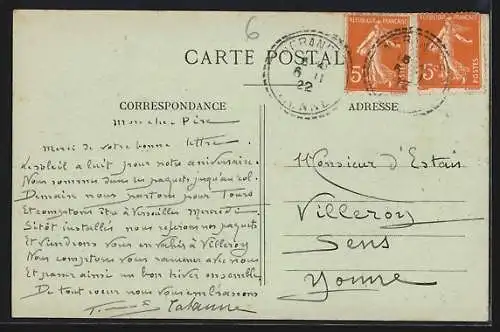 6
CARTE POSTALE
REPUBLIQUE FRANÇAISE
5c
POSTES
REPUBLIQUE FRANÇAISE
5c
POSTES
6 - 11
22
YONNE
CORRESPONDANCE
ADRESSE
Mon cher Père
Merci de votre bonne lettre.
Le soleil a lui pour notre anniversaire.
Nous sommes dans les paquets jusqu'au col.
Demain nous partons pour Tours
Et comptons être à Versailles Mercredi
Sitôt installés nous referons nos paquets
Et viendrons vous enlever à Villeroy
Nous comptons vous ramener avec nous
Et passer ainsi un bon hiver ensemble.
De tout coeur nous vous embrassons
Monsieur d'Estais
Villeroy
Sens
Yonne